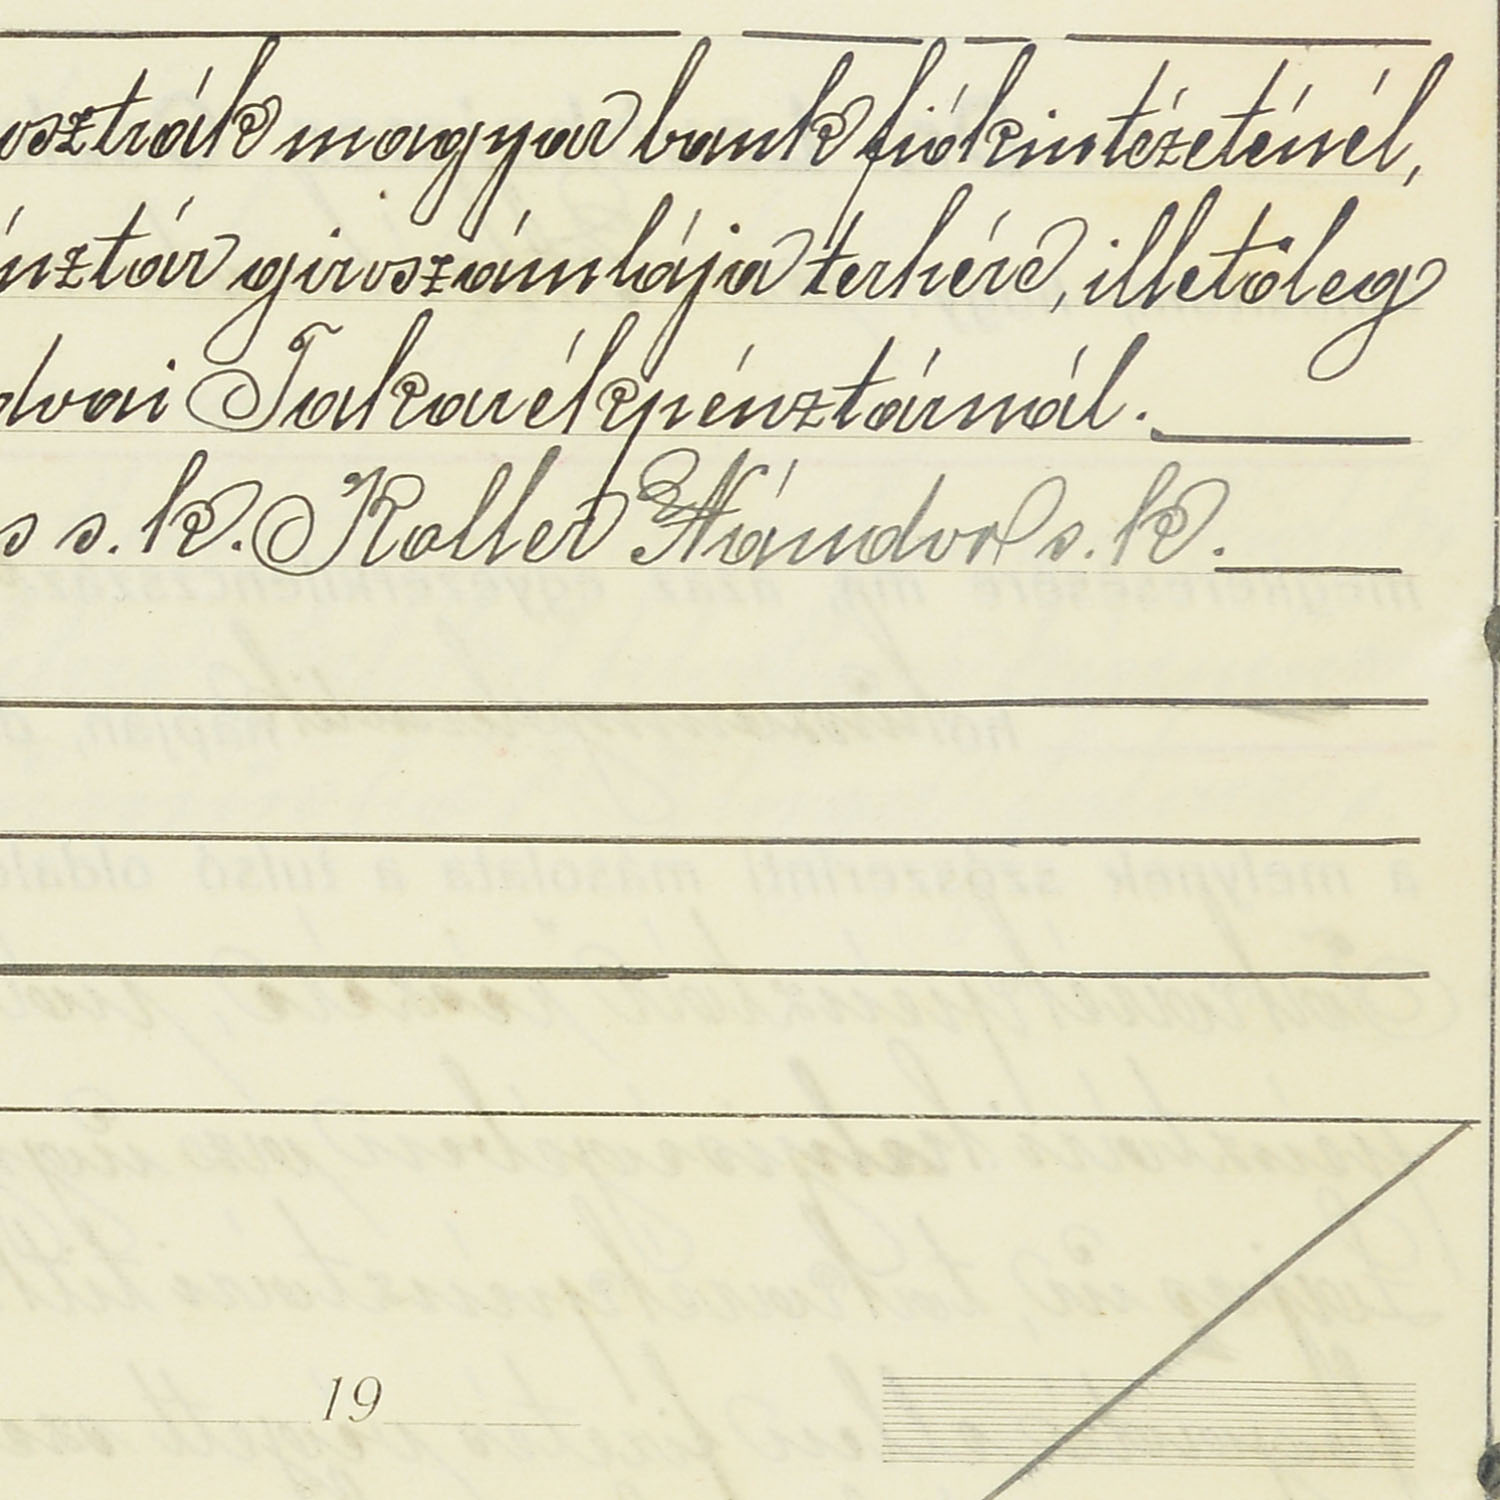 osztrák magyar bank fiókintézeténél,
énztár giroszámlája terhére, illetőleg
dvai Takarékpénztárnál.
s s. k. Koller Nándor s. k.
19